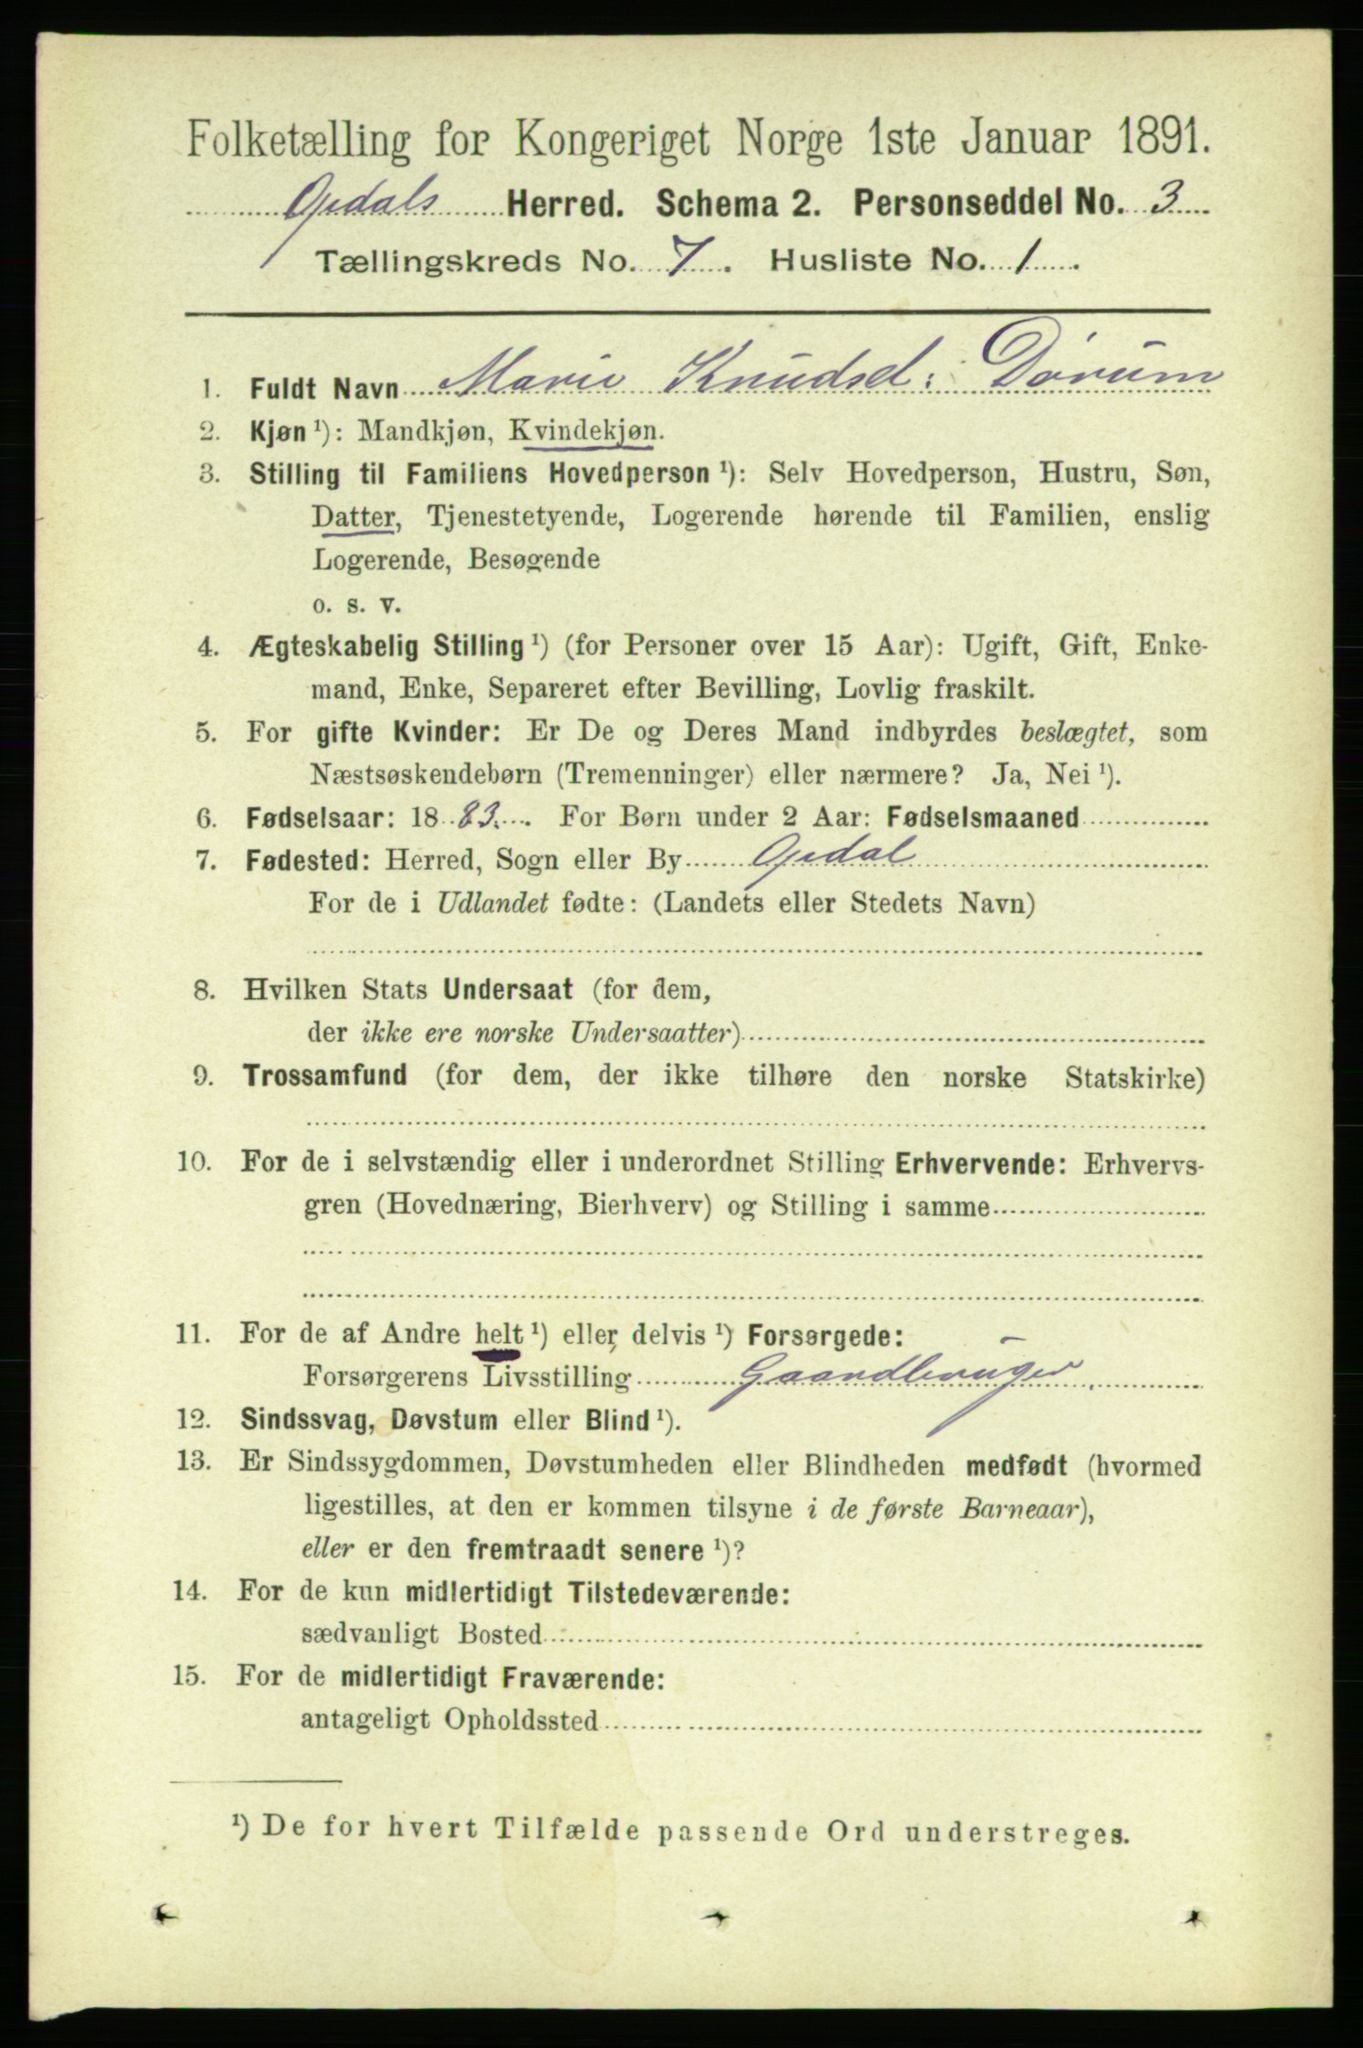 Folketælling for Kongeriget Norge 1ste Januar 1891.
Opdals Herred. Schema 2. Personseddel No. 3
Tællingskreds No. 7. Husliste No. 1.
1. Fuldt Navn Marie Knudsd: Dørum
2. Kjøn ¹): Mandkjøn, Kvindekjøn.
3. Stilling til Familiens Hovedperson ¹): Selv Hovedperson, Hustru, Søn,
Datter, Tjenestetyende, Logerende hørende til Familien, enslig
Logerende, Besøgende
o. s. v.
4. Ægteskabelig Stilling ¹) (for Personer over 15 Aar): Ugift, Gift, Enke-
mand, Enke, Separeret efter Bevilling, Lovlig fraskilt.
5. For gifte Kvinder: Er De og Deres Mand indbyrdes beslægtet, som
Næstsøskendebørn (Tremenninger) eller nærmere? Ja, Nei ¹).
6. Fødselsaar: 1883. For Børn under 2 Aar: Fødselsmaaned
7. Fødested: Herred, Sogn eller By Opdal
For de i Udlandet fødte: (Landets eller Stedets Navn)
8. Hvilken Stats Undersaat (for dem,
der ikke ere norske Undersaatter)
9. Trossamfund (for dem, der ikke tilhøre den norske Statskirke)
10. For de i selvstændig eller i underordnet Stilling Erhvervende: Erhvervs-
gren (Hovednæring, Bierhverv) og Stilling i samme
11. For de af Andre helt ¹) eller delvis ¹) Forsørgede:
Forsørgerens Livsstilling Gaardbruger
12. Sindssvag, Døvstum eller Blind ¹).
13. Er Sindssygdommen, Døvstumheden eller Blindheden medfødt (hvormed
ligestilles, at den er kommen tilsyne i de første Barneaar),
eller er den fremtraadt senere ¹)?
14. For de kun midlertidigt Tilstedeværende:
sædvanligt Bosted
15. For de midlertidigt Fraværende:
antageligt Opholdssted
¹) De for hvert Tilfælde passende Ord understreges.